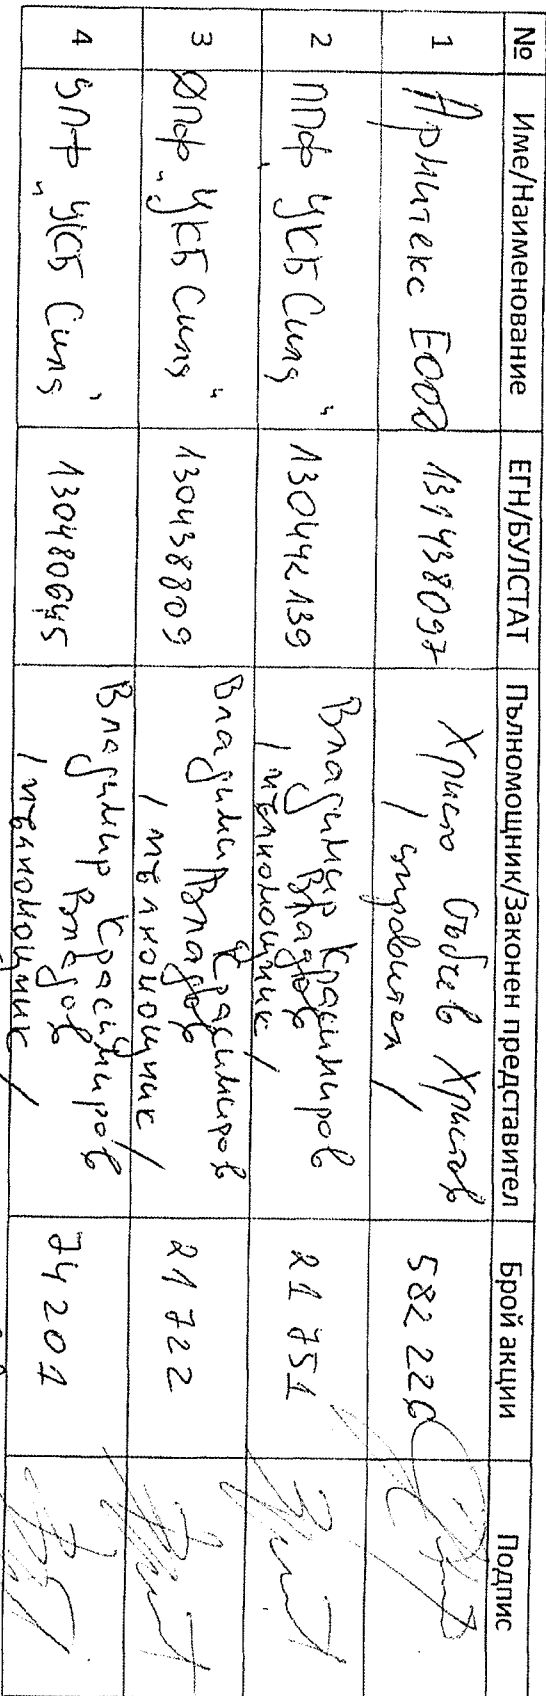 № Име/Наименование ЕГН/БУЛСТАТ Пълномощник/Законен представител Брой акции Подпис
1 Армитекс ЕООД 131438097 Христо Христов 582 226
/управител/
2 ППФ „ЦКБ Сила“ 130442139 Владимир Красимиров 21 751
Владов
/пълномощник/
3 ДПФ „ЦКБ Сила“ 130438809 Владимир Красимиров 21 722
Владов
/пълномощник/
4 УПФ „ЦКБ Сила“ 130480645 Владимир Красимиров 74 201
Владов
/пълномощник/